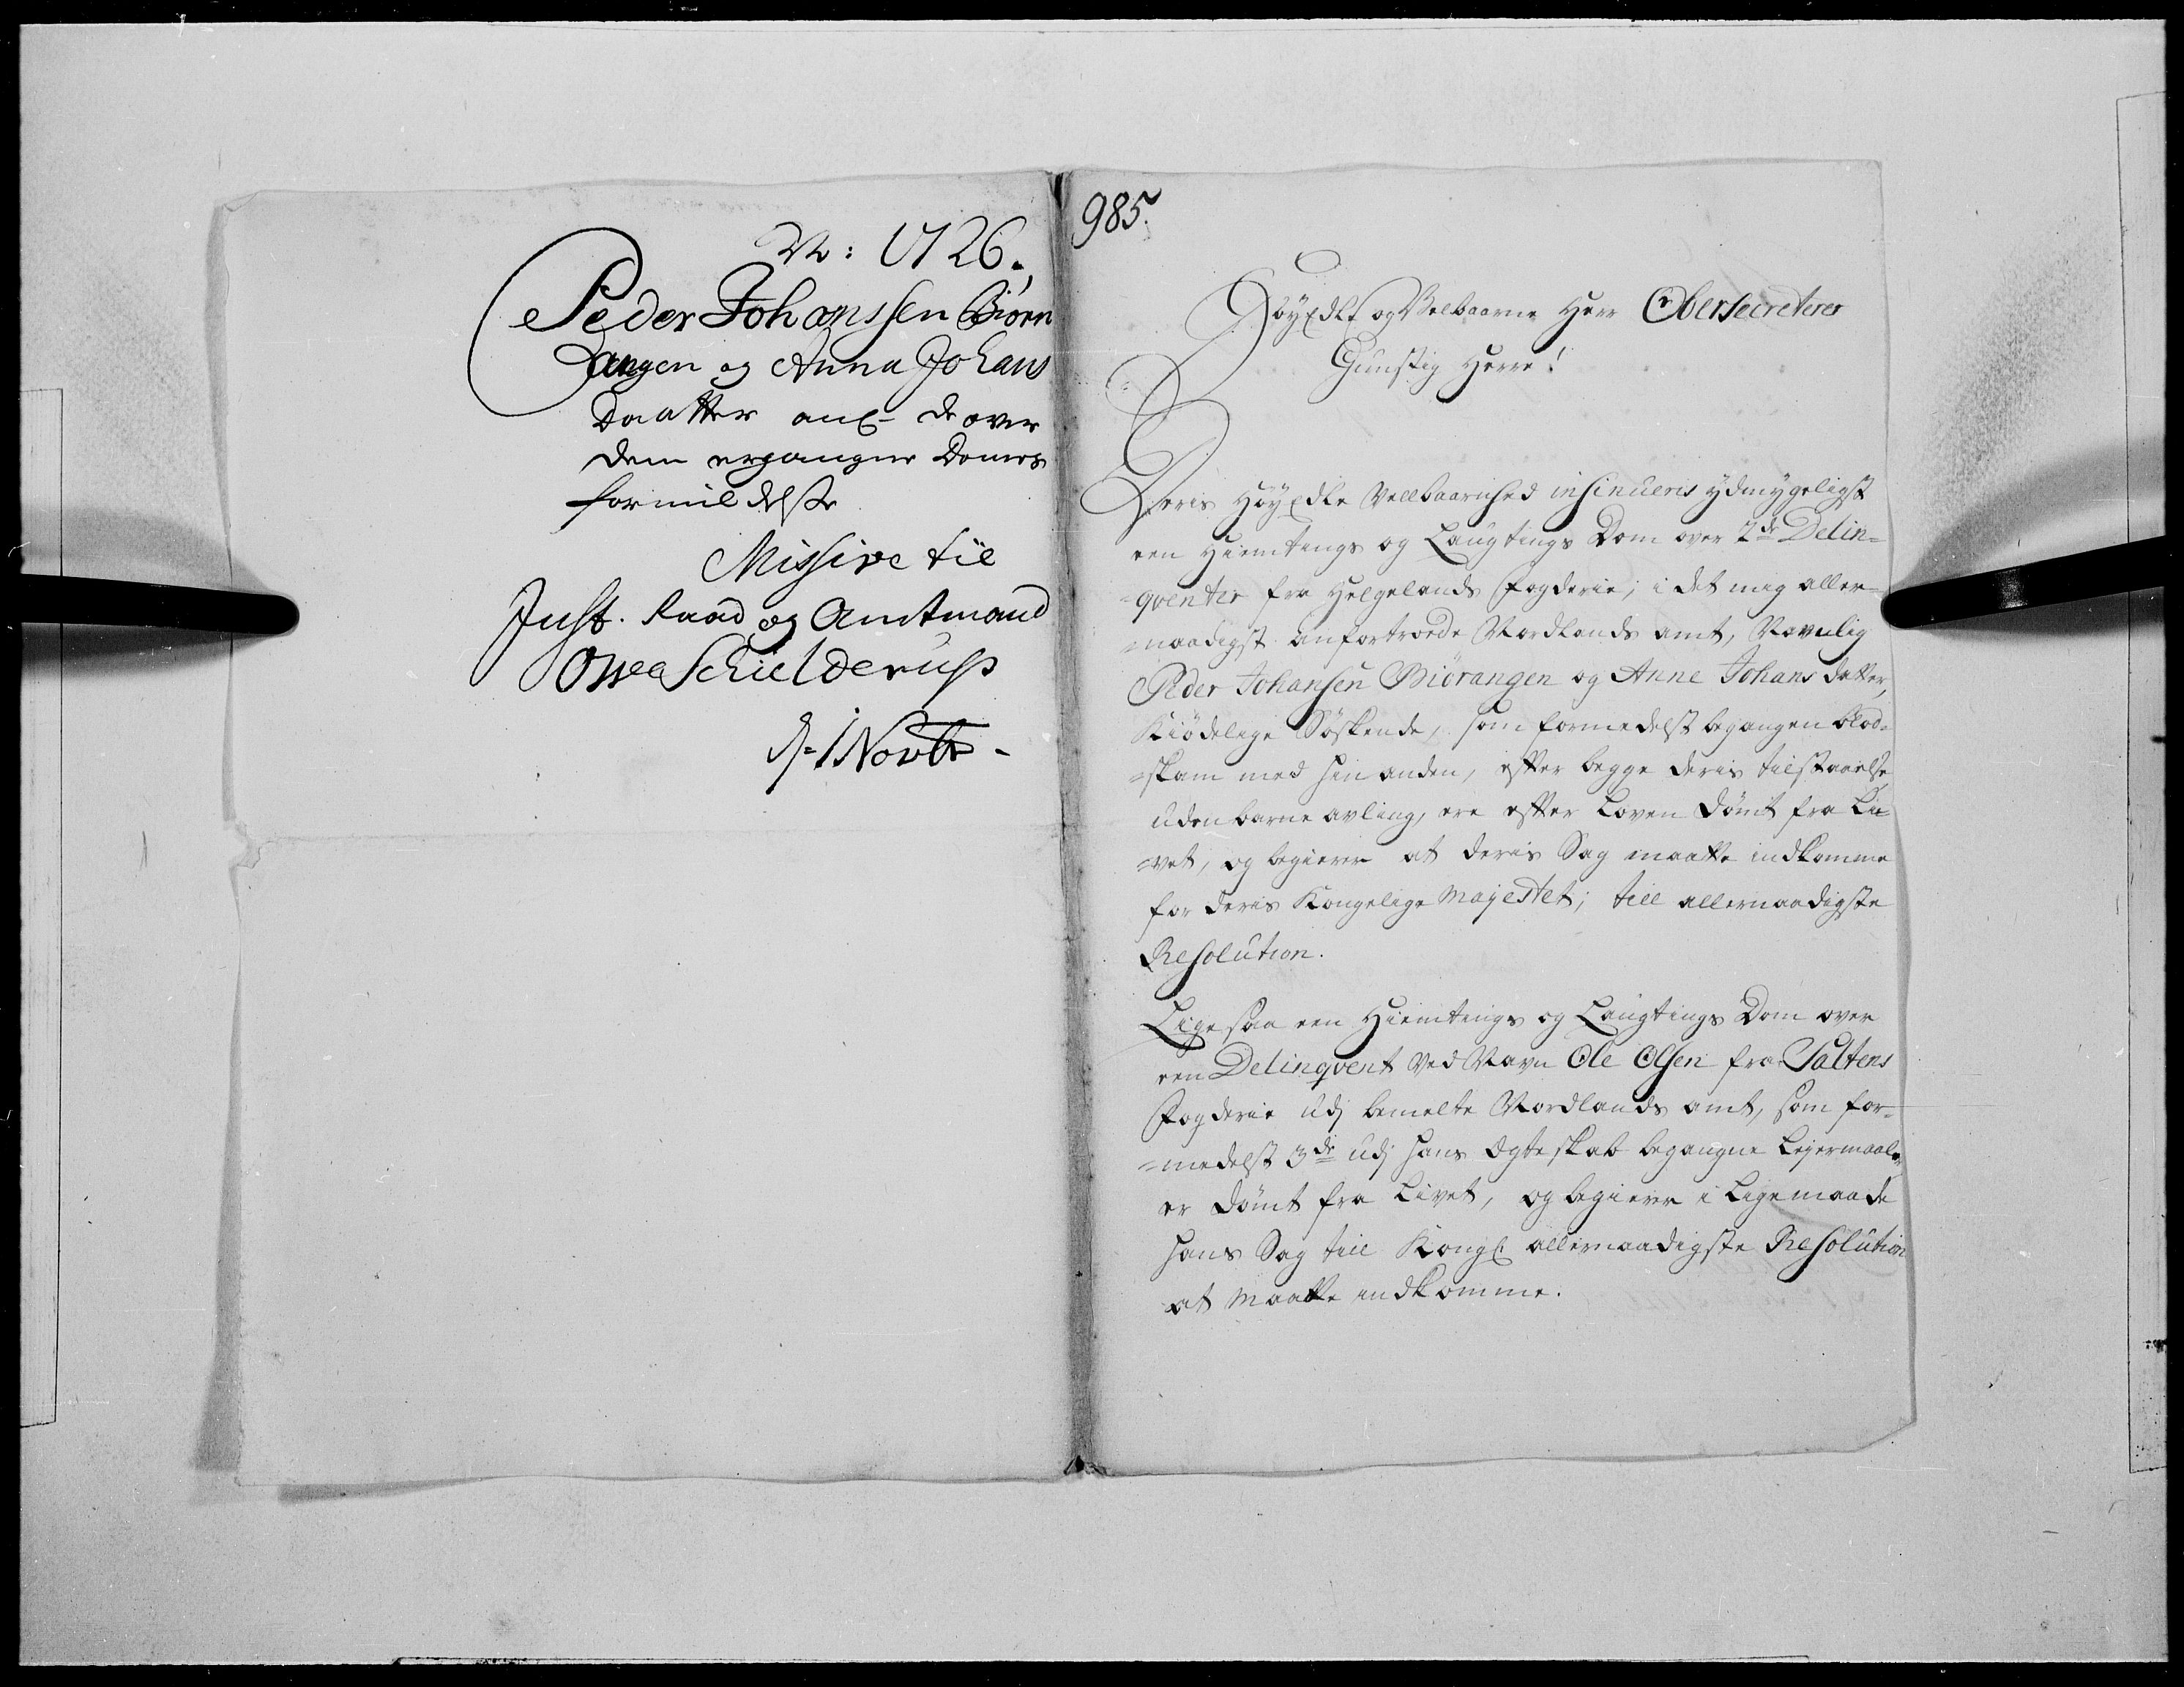 No: 1726.
Peder Johanssen Biørn
angen og Anna Johans
Daatter ang: de over
dem ergangne Domes
formildelse
Missive til
Just. Raad og Amtmand
Owe Schielderup
d: 1 Novbr.
985.
HøyEdle og Velbaarne Herr Obersecreterer
Gunstig Herre!
Deris HøyEdle Vellbaarnhed insinueris ydmygeligst
een Hiemtings og Laugtings Dom over 2de Delin=
=qventer fra Helgelands fogderie, i det mig aller=
=naadigst anfortroede Nordlands amt, Navnlig
Peder Johansen Biörangen og Anne Johans datter,
Kiödelige Söskende, som formedelst begangen blod=
=skam med hin anden, efter begge deris tilstaaelse
uden barne avling, ere efter Loven dömt fra Li
=vet, og begierer at deris Sag maatte indkomme
for deris Kongelige Majestet; till allernaadigste
Resolution.
Lige saa een Hiemtings og Laugtings Dom over
een Delinqvent ved Navn Ole Olsen fra Saltens
Fogderie udj bemelte Nordlands amt, som for=
=medelst 3de udj hans Egteskab begangne Lejermaaler
er dömt fra Livet, og begierer i Ligemaade
hans Sag till Kongl. allernaadigste Resolution
at maatte indkomme.